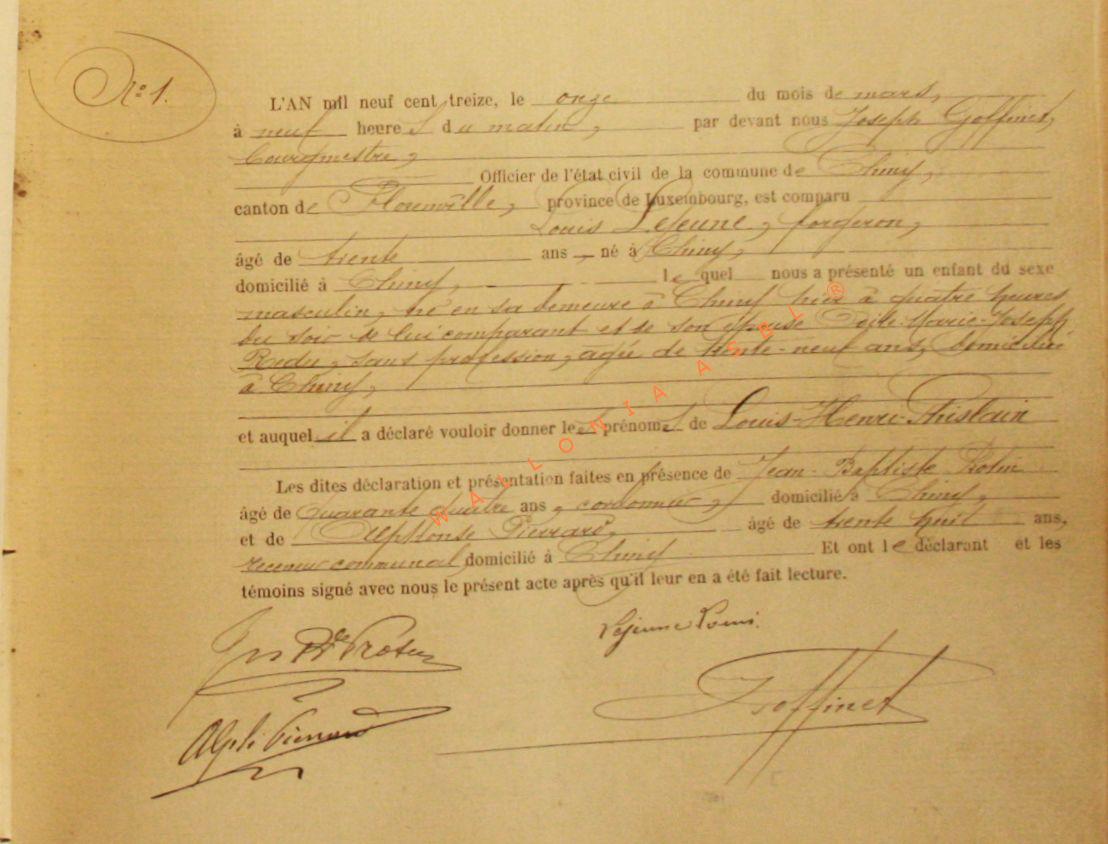 No 1.
L'AN mil neuf cent treize, le onze du mois de mars,
à neuf heures du matin, par devant nous Joseph Goffinet,
bourgmestre,
Officier de l'état civil de la commune de Chiny,
canton de Florenville, province de Luxembourg, est comparu
Louis Lejeune, forgeron,
âgé de trente ans, né à Chiny,
domicilié à Chiny, lequel nous a présenté un enfant du sexe
masculin, né en sa demeure à Chiny hier à quatre heures
du soir de lui comparant et de son épouse Marie-Joseph
sans profession, agée de trente-neuf ans, domiciliée
à Chiny,
et auquel il a déclaré vouloir donner les prénoms de Louis-Henri-Ghislain
Les dites déclaration et présentation faites en présence de Jean-Baptiste
âgé de quarante quatre ans, cordonnier, domicilié à Chiny,
et de Alphonse Pierrard, âgé de trente huit ans,
receveur communal domicilié à Chiny Et ont le déclarant et les
témoins signé avec nous le présent acte après qu'il leur en a été fait lecture.
Lejeune Louis.
Goffinet
WALLONIA ASBL ®